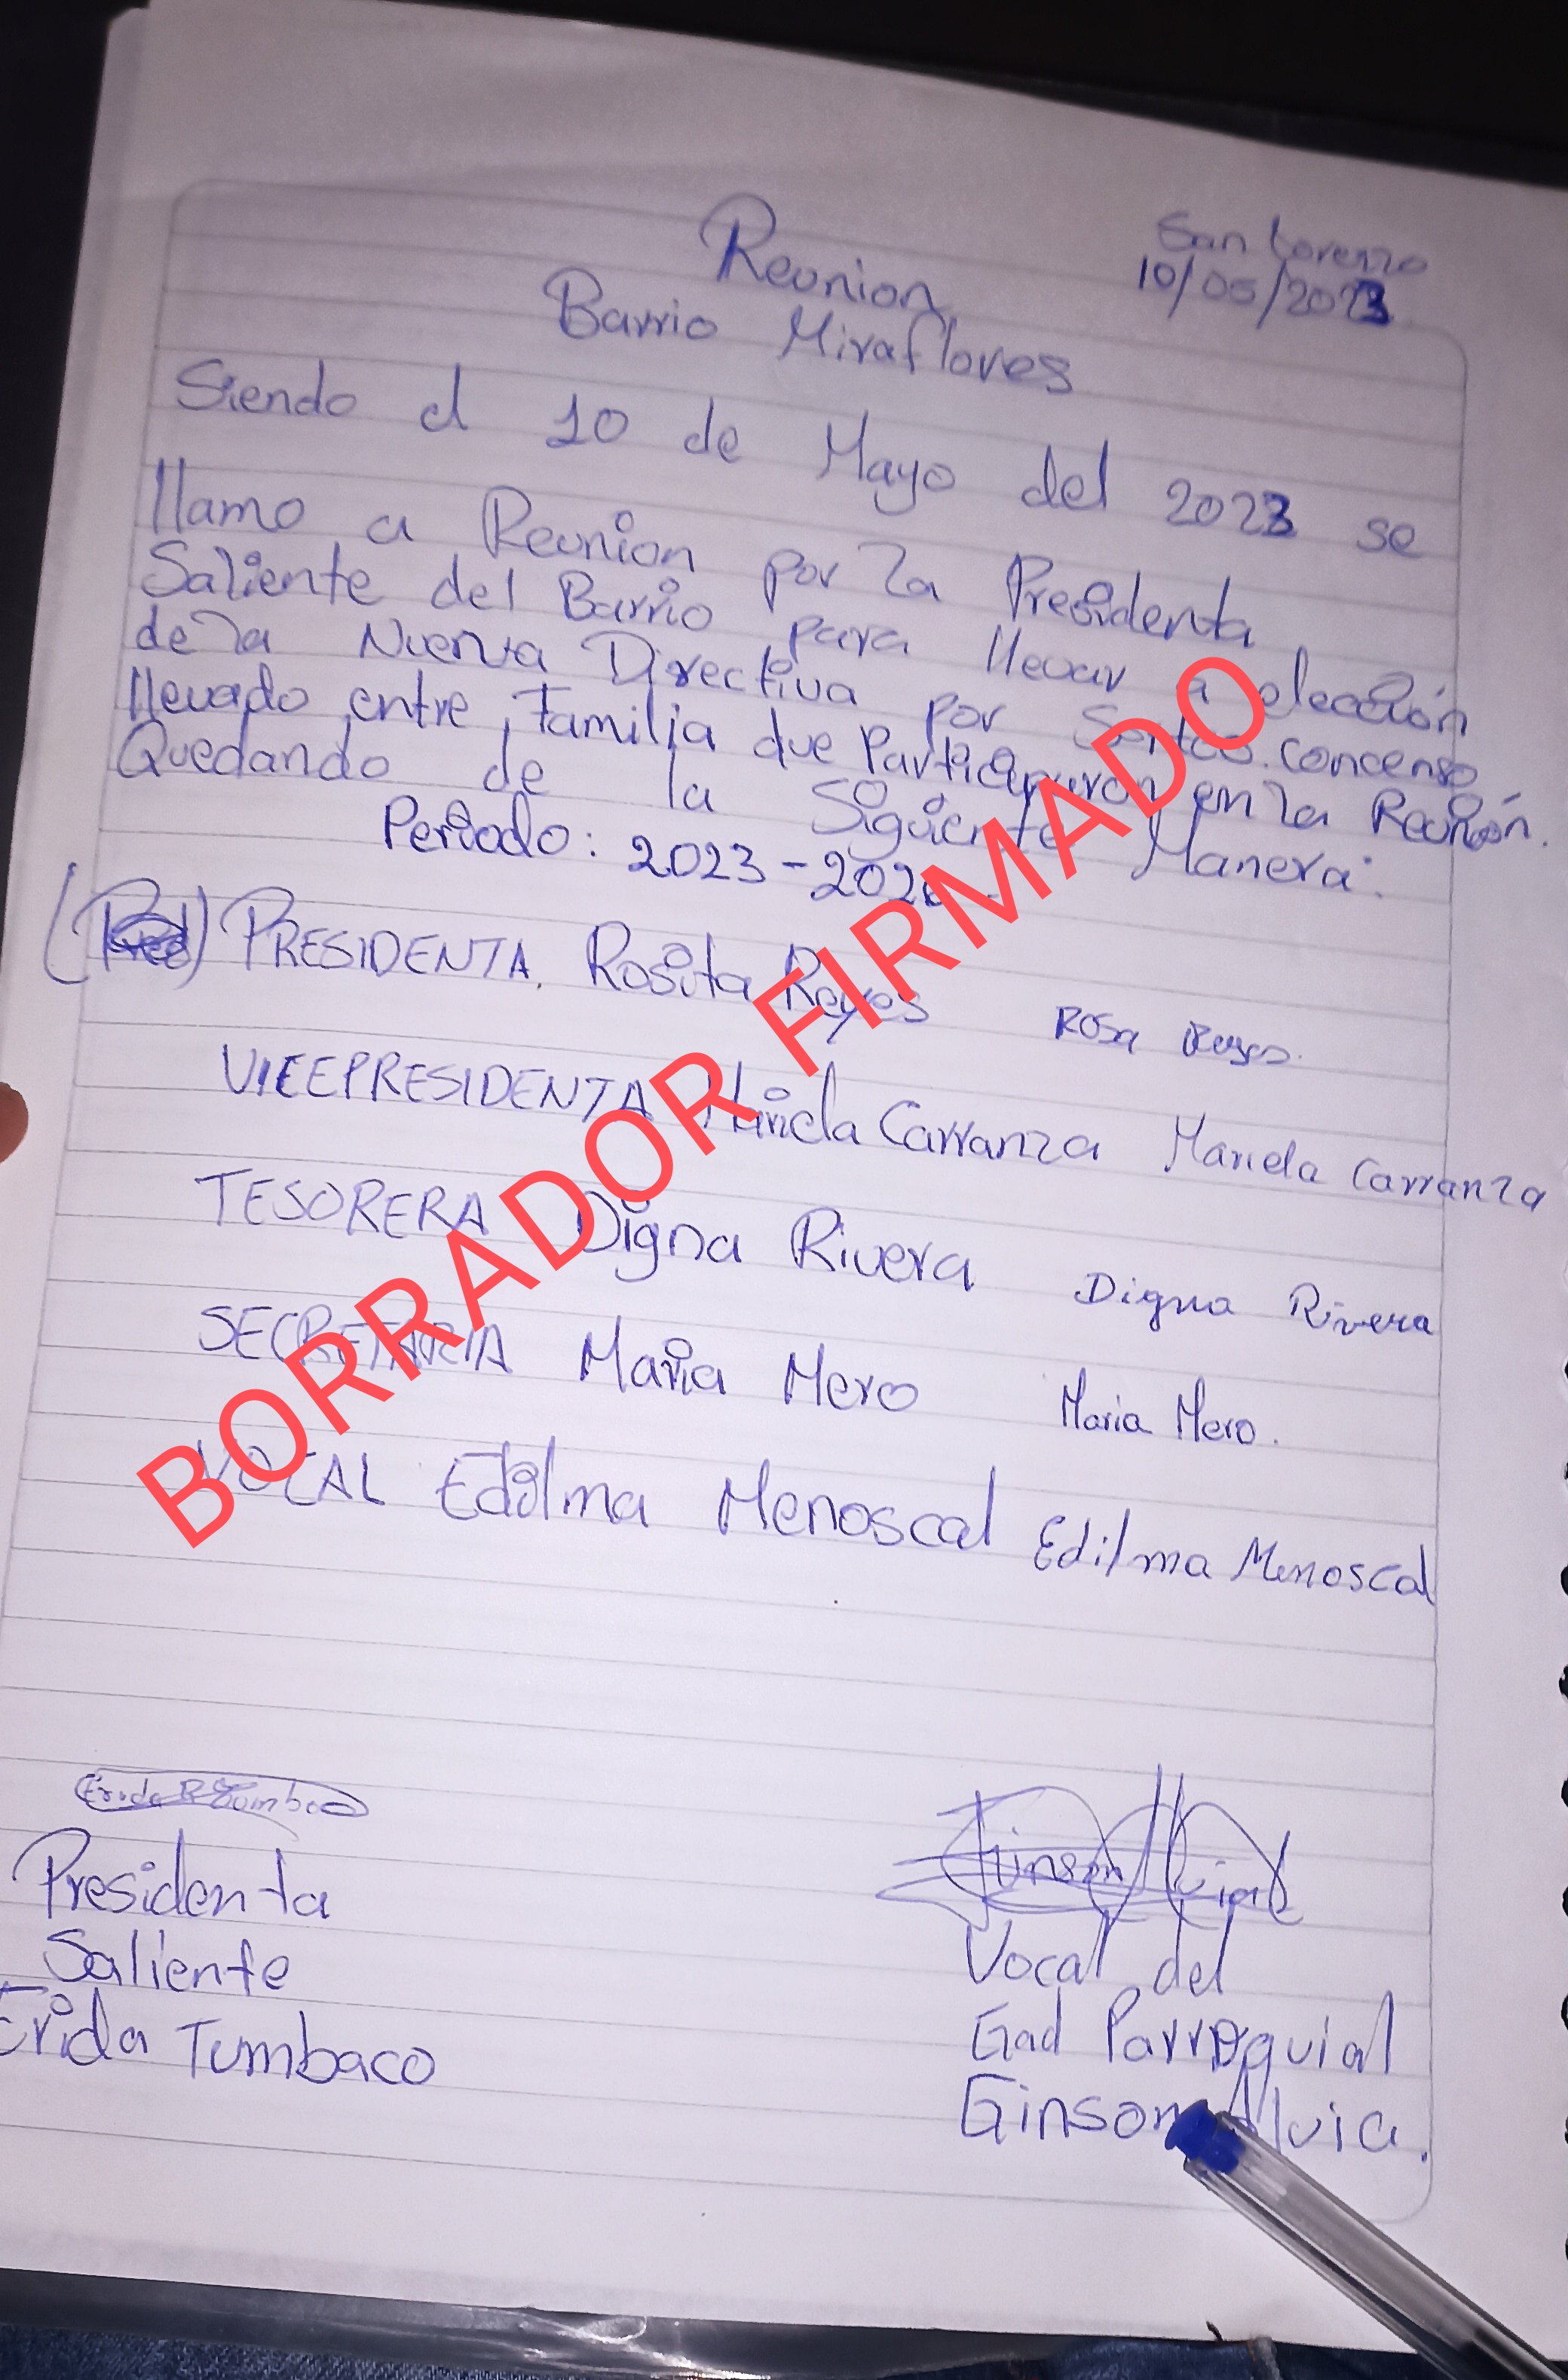 San Lorenzo
10/05/2023
Reunion
Barrio Miraflores
Siendo el 10 de Mayo del 2023 se
llamo a Reunion por la Presidenta
Saliente del Barrio para llevar a elección
de la Nueva Directiva por Sorteo. concenso
llevado entre Familia que Participaron en la Reunión.
Quedando de la Siguiente Manera:
Periodo: 2023-202
PRESIDENTA. Rosita Reyes Rosa Reyes.
VICEPRESIDENTA Mariela Carranza Mariela Carranza
TESORERA Digna Rivera Digna Rivera
SECRETARIA Maria Mero Maria Mero.
VOCAL Edilma Menoscal Edilma Menoscal
BORRADOR FIRMADO
Erida Tumbaco
Presidenta
Saliente
Erida Tumbaco
Ginson Alvia
Vocal del
Gad Parroquial
Ginson Alvia.